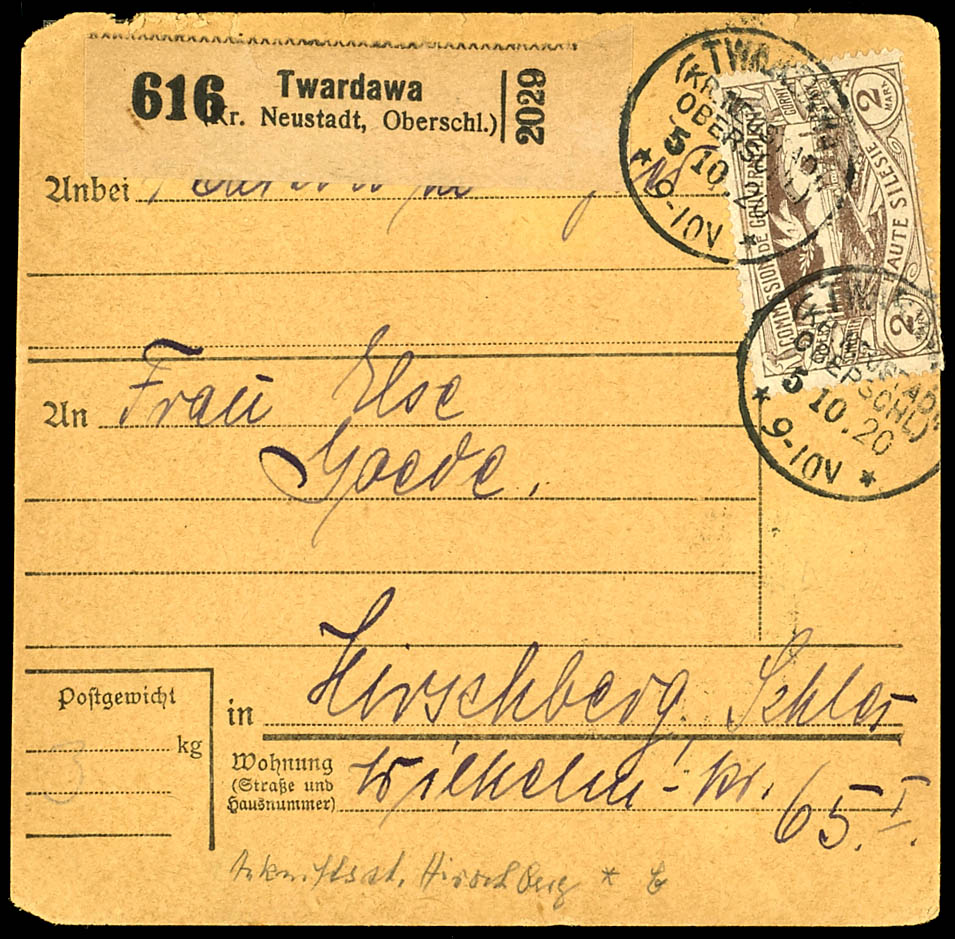 616
Twardawa
(Kr. Neustadt, Oberschl.)
2029
Anbei
(KR.NEUSTADT
OBERSCHL)
5 10.
9-10V
COMMISSION DE GOUVERNEMENT
HAUTE SILESIE
2
MARK
2
(KR.NEUSTADT
OBERSCHL)
5 10.20
9-10V
An Frau Else
Goede,
Postgewicht
kg
in Hirschberg, Schles
Wohnung
(Straße und
Hausnummer)
Wilhelm-str. 65.I.
Hirschberg * b